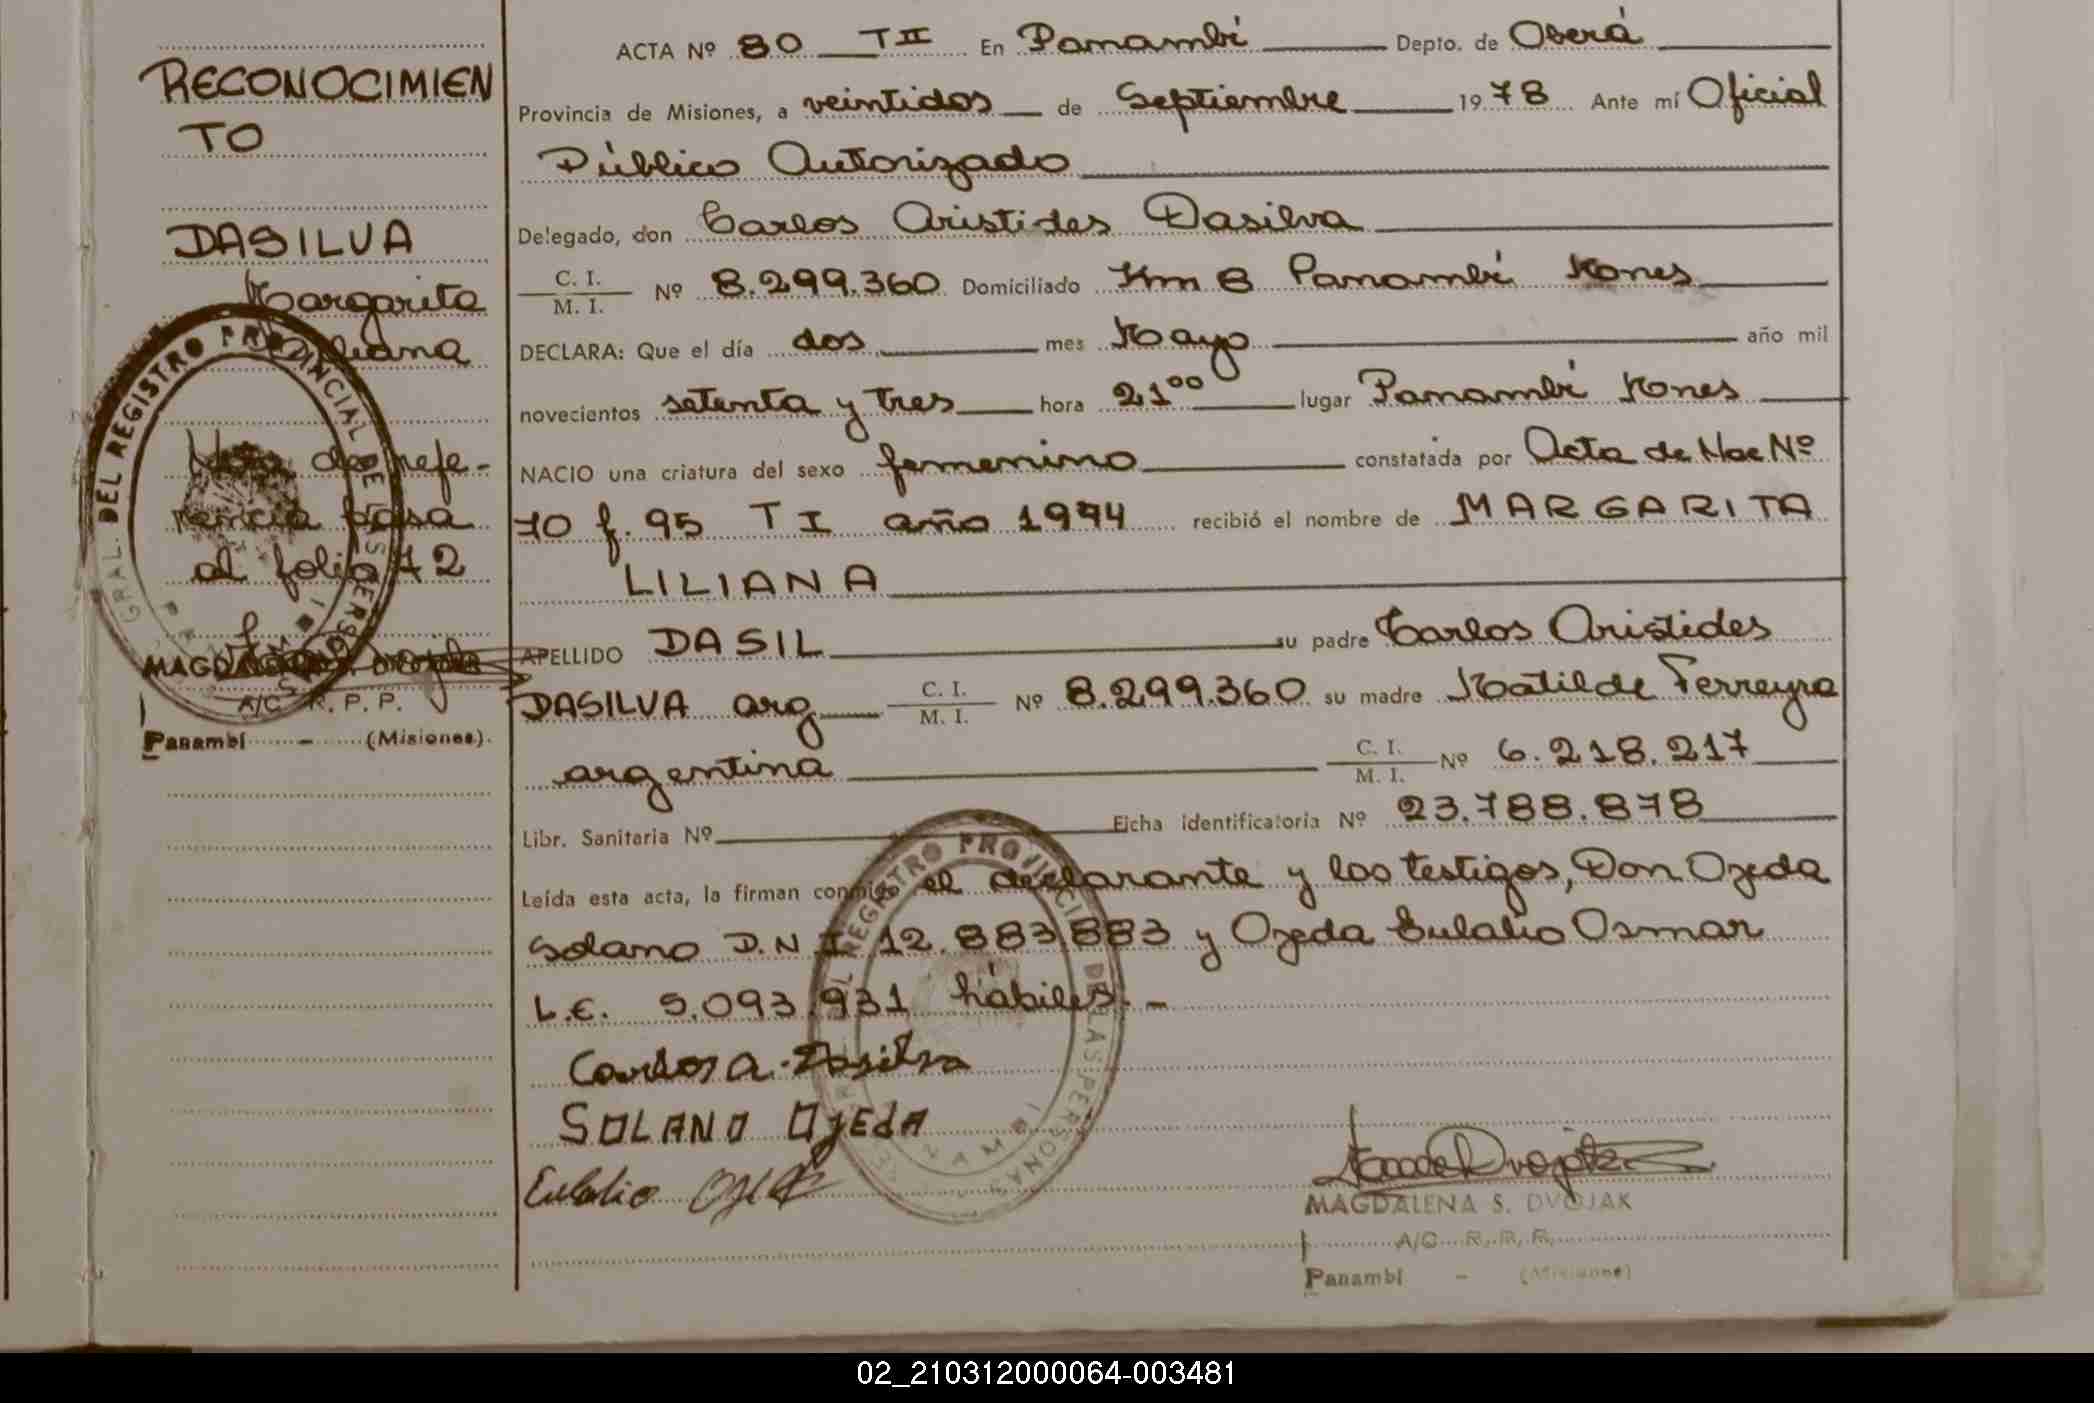 RECONOCIMIEN
TO
DASILVA
Margarita
Liliana
Nota de refe-
rencia pasa
al folio 72
MAGDALENA S. DVOJAK
A/C R. P. P.
Panambí - (Misiones).
GRAL. DEL REGISTRO PROVINCIAL DE LAS PERSONAS
ACTA Nº 80 TII En Panambí Depto. de Oberá
Provincia de Misiones, a veintidos de Septiembre 1978 Ante mí Oficial
Público Autorizado
Delegado, don Carlos Aristides Dasilva
C. I.
M. I. Nº 8.299.360 Domiciliado Km 8 Panambí Mones
DECLARA: Que el día dos mes Mayo año mil
novecientos setenta y tres hora 21⁰⁰ lugar Panambí Mones
NACIO una criatura del sexo femenino constatada por Acta de Nac Nº
70 f. 95 T I año 1974 recibió el nombre de MARGARITA
LILIANA
APELLIDO DASIL su padre Carlos Aristides
DASILVA arg C. I.
M. I. Nº 8.299.360 su madre Matilde Ferreyra
argentina C. I.
M. I. Nº 6.218.217
Libr. Sanitaria Nº Ficha identificatoria Nº 23.788.878
Leída esta acta, la firman conmigo el declarante y los testigos, Don Ojeda
Solano D.N.I 12.883.883 y Ojeda Eulalio Osmar
L.E. 5.093.931 hábiles.-
Carlos A. Dasilva
SOLANO OJEDA
Eulalio
REGISTRO PROVINCIAL DE LAS PERSONAS
MAGDALENA S. DVOJAK
A/C R. P. P.
Panambí - (Misiones)
02_210312000064-003481